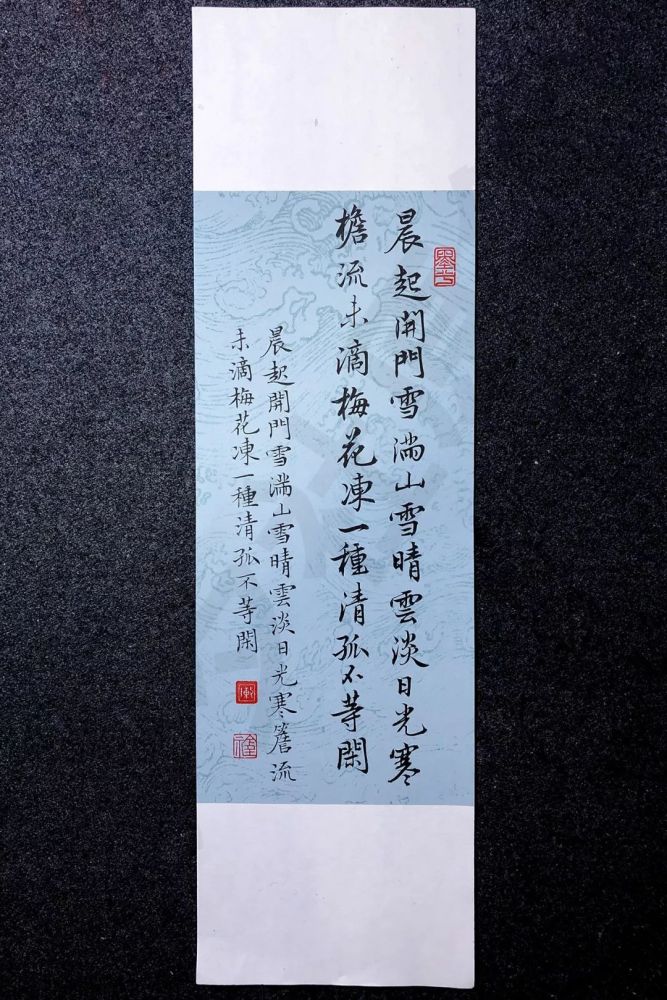 晨起開門雪滿山雪晴雲淡日光寒
檐流未滴梅花凍一種清孤不等閑
晨起開門雪滿山雪晴雲淡日光寒簷流
未滴梅花凍一種清孤不等閑